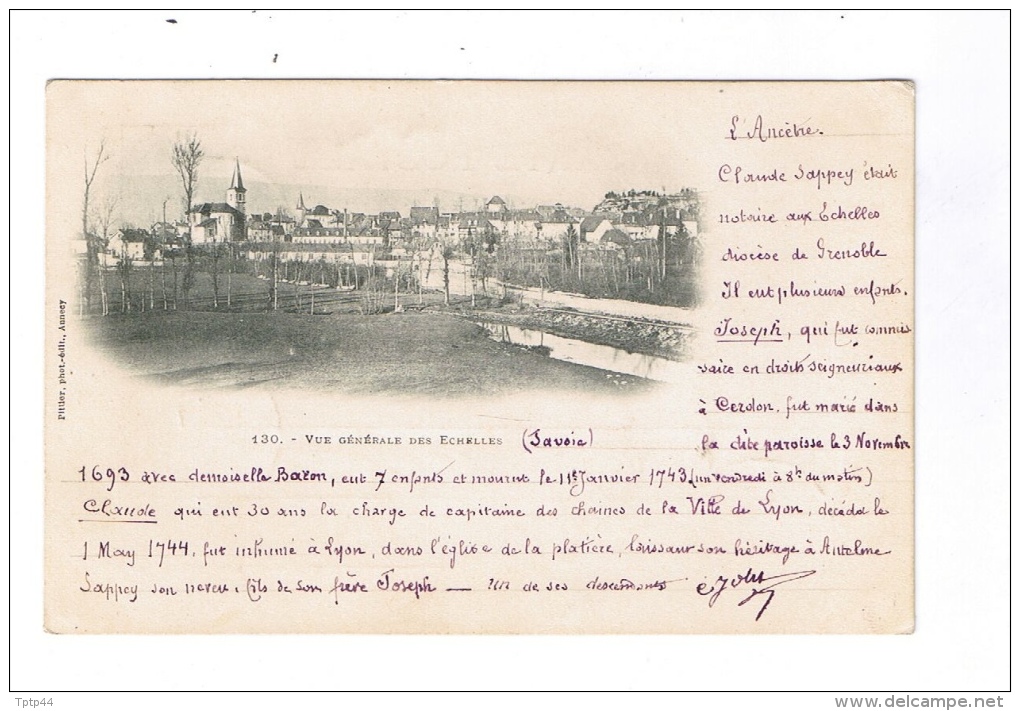 L'Ancêtre.
Claude Sappey était
notaire aux Echelles
diocèse de Grenoble
Il eut plusieurs enfants.
Joseph, qui fut commis
saire en droits seigneuriaux
à Cerdon, fut marié dans
la dite paroisse le 3 Novembre
Pittier, phot.-édit., Annecy
130. - VUE GÉNÉRALE DES ECHELLES (Savoie)
1693 avec demoiselle Baron, eut 7 enfants et mourut le 11e Janvier 1743 (un vendredi à 8h du matin)
Claude qui eut 30 ans la charge de capitaine des chaines de la Ville de Lyon, décéda le
1 May 1744, fut inhumé à Lyon, dans l'église de la platière, laissant son héritage à Antelme
Sappey son neveu, fils de son frère Joseph — un de ses descendants
Tptp44
www.delcampe.net